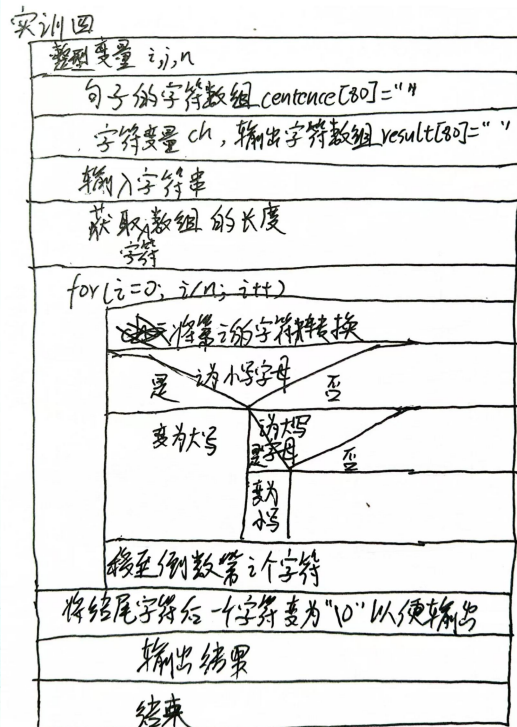 实训四
整型变量 i,j,n
句子的字符数组 centence[80]=""
字符变量 ch, 输出字符数组 result[80]=" "
输入字符串
获取字符数组的长度
for(i=0; i<n; i++)
将第i的字符转换
i为小写字母
是 否
变为大写
i为大写字母
是 否
变为小写
移至倒数第i个字符
将结尾字符后一个字符变为"\0"以便输出
输出结果
结束